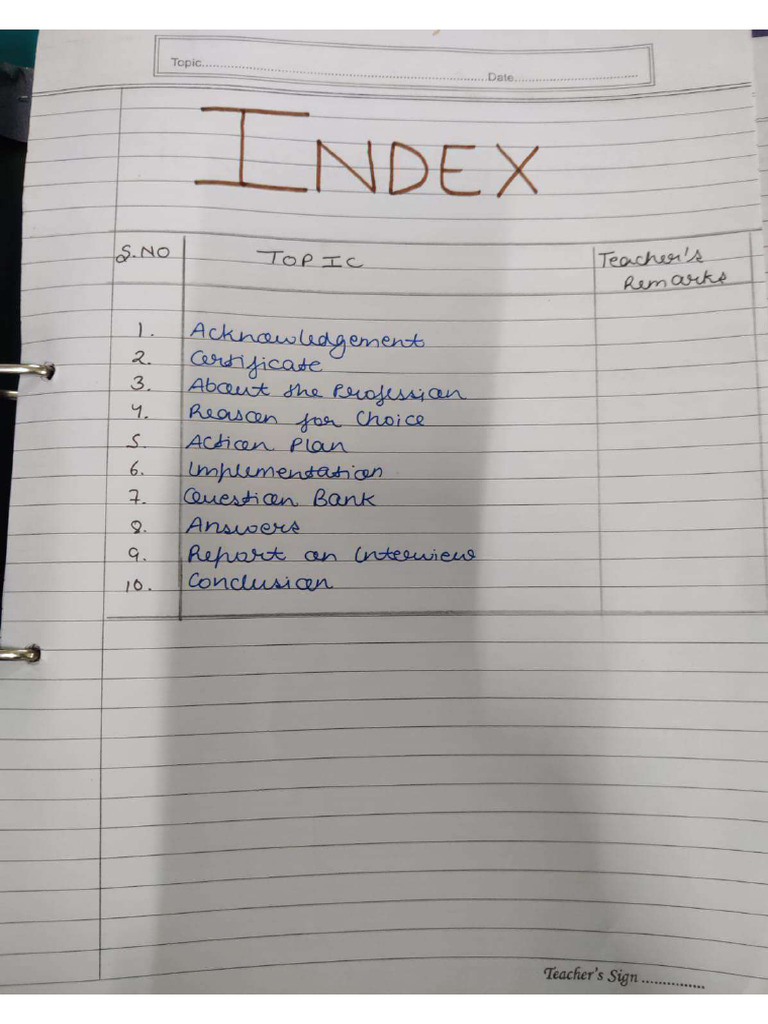 Topic.......................................................................... Date................................
INDEX
S.NO TOPIC Teacher's Remarks
1. Acknowledgement
2. Certificate
3. About the Profession
4. Reason for Choice
5. Action Plan
6. Implementation
7. Question Bank
8. Answers
9. Report on Interview
10. Conclusion
Teacher's Sign ...............